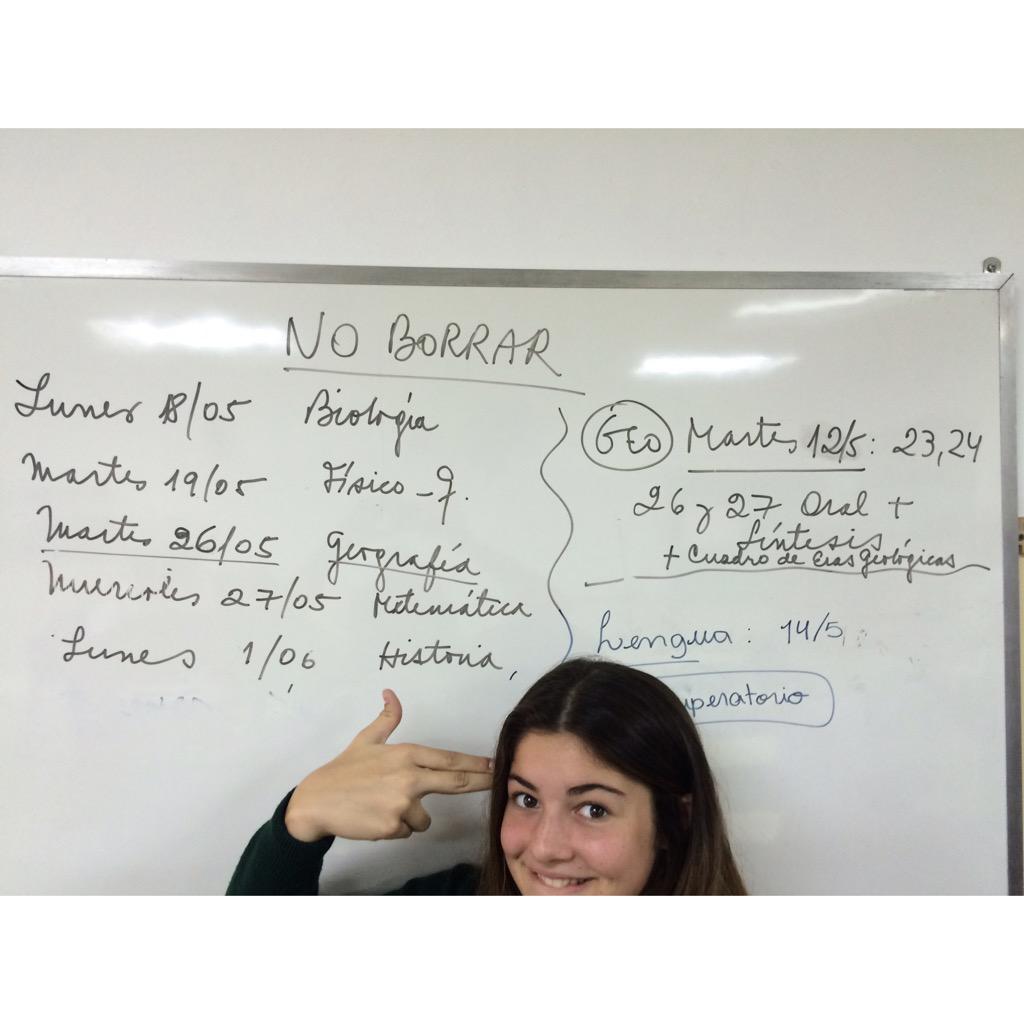 NO BORRAR
Lunes 18/05 Biología
Martes 19/05 Físico-Q.
Martes 26/05 Geografía
Miercoles 27/05 Matemática
Lunes 1/06 Historia
GEO Martes 12/5: 23,24
26 y 27 Oral +
Síntesis
+ Cuadro de Eras Geológicas
Lengua: 14/5
uperatorio